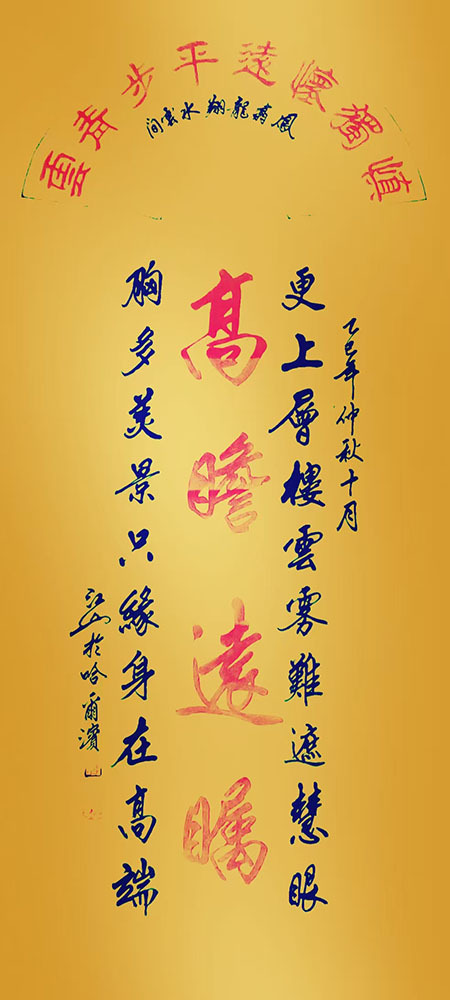 慎獨懷遠平步青雲
鳳翥龍翔水雲間
乙巳年仲秋十月
更上層樓雲霧難遮慧眼
高瞻遠矚
胸多美景只緣身在高端
江山於哈爾濱